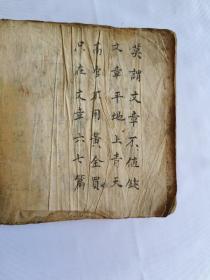 莫謂文章不值錢
文章平地上青天
高官不用黃金買
只在文章六七篇